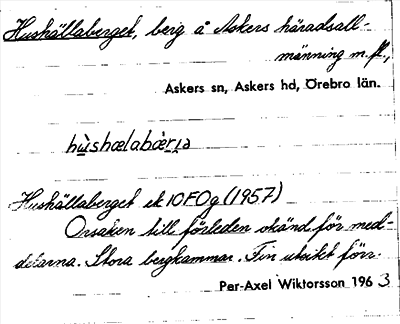 Hushällaberget, berg å Askers häradsall-
männing m.fl.,
Askers sn, Askers hd, Örebro län.
hùshælabæ̀rja
Hushällaberget ek 10F0g (1957)
Orsaken till förleden okänd för med-
delarna. Stora bergkammar. Fin utsikt förr.
Per-Axel Wiktorsson 1963